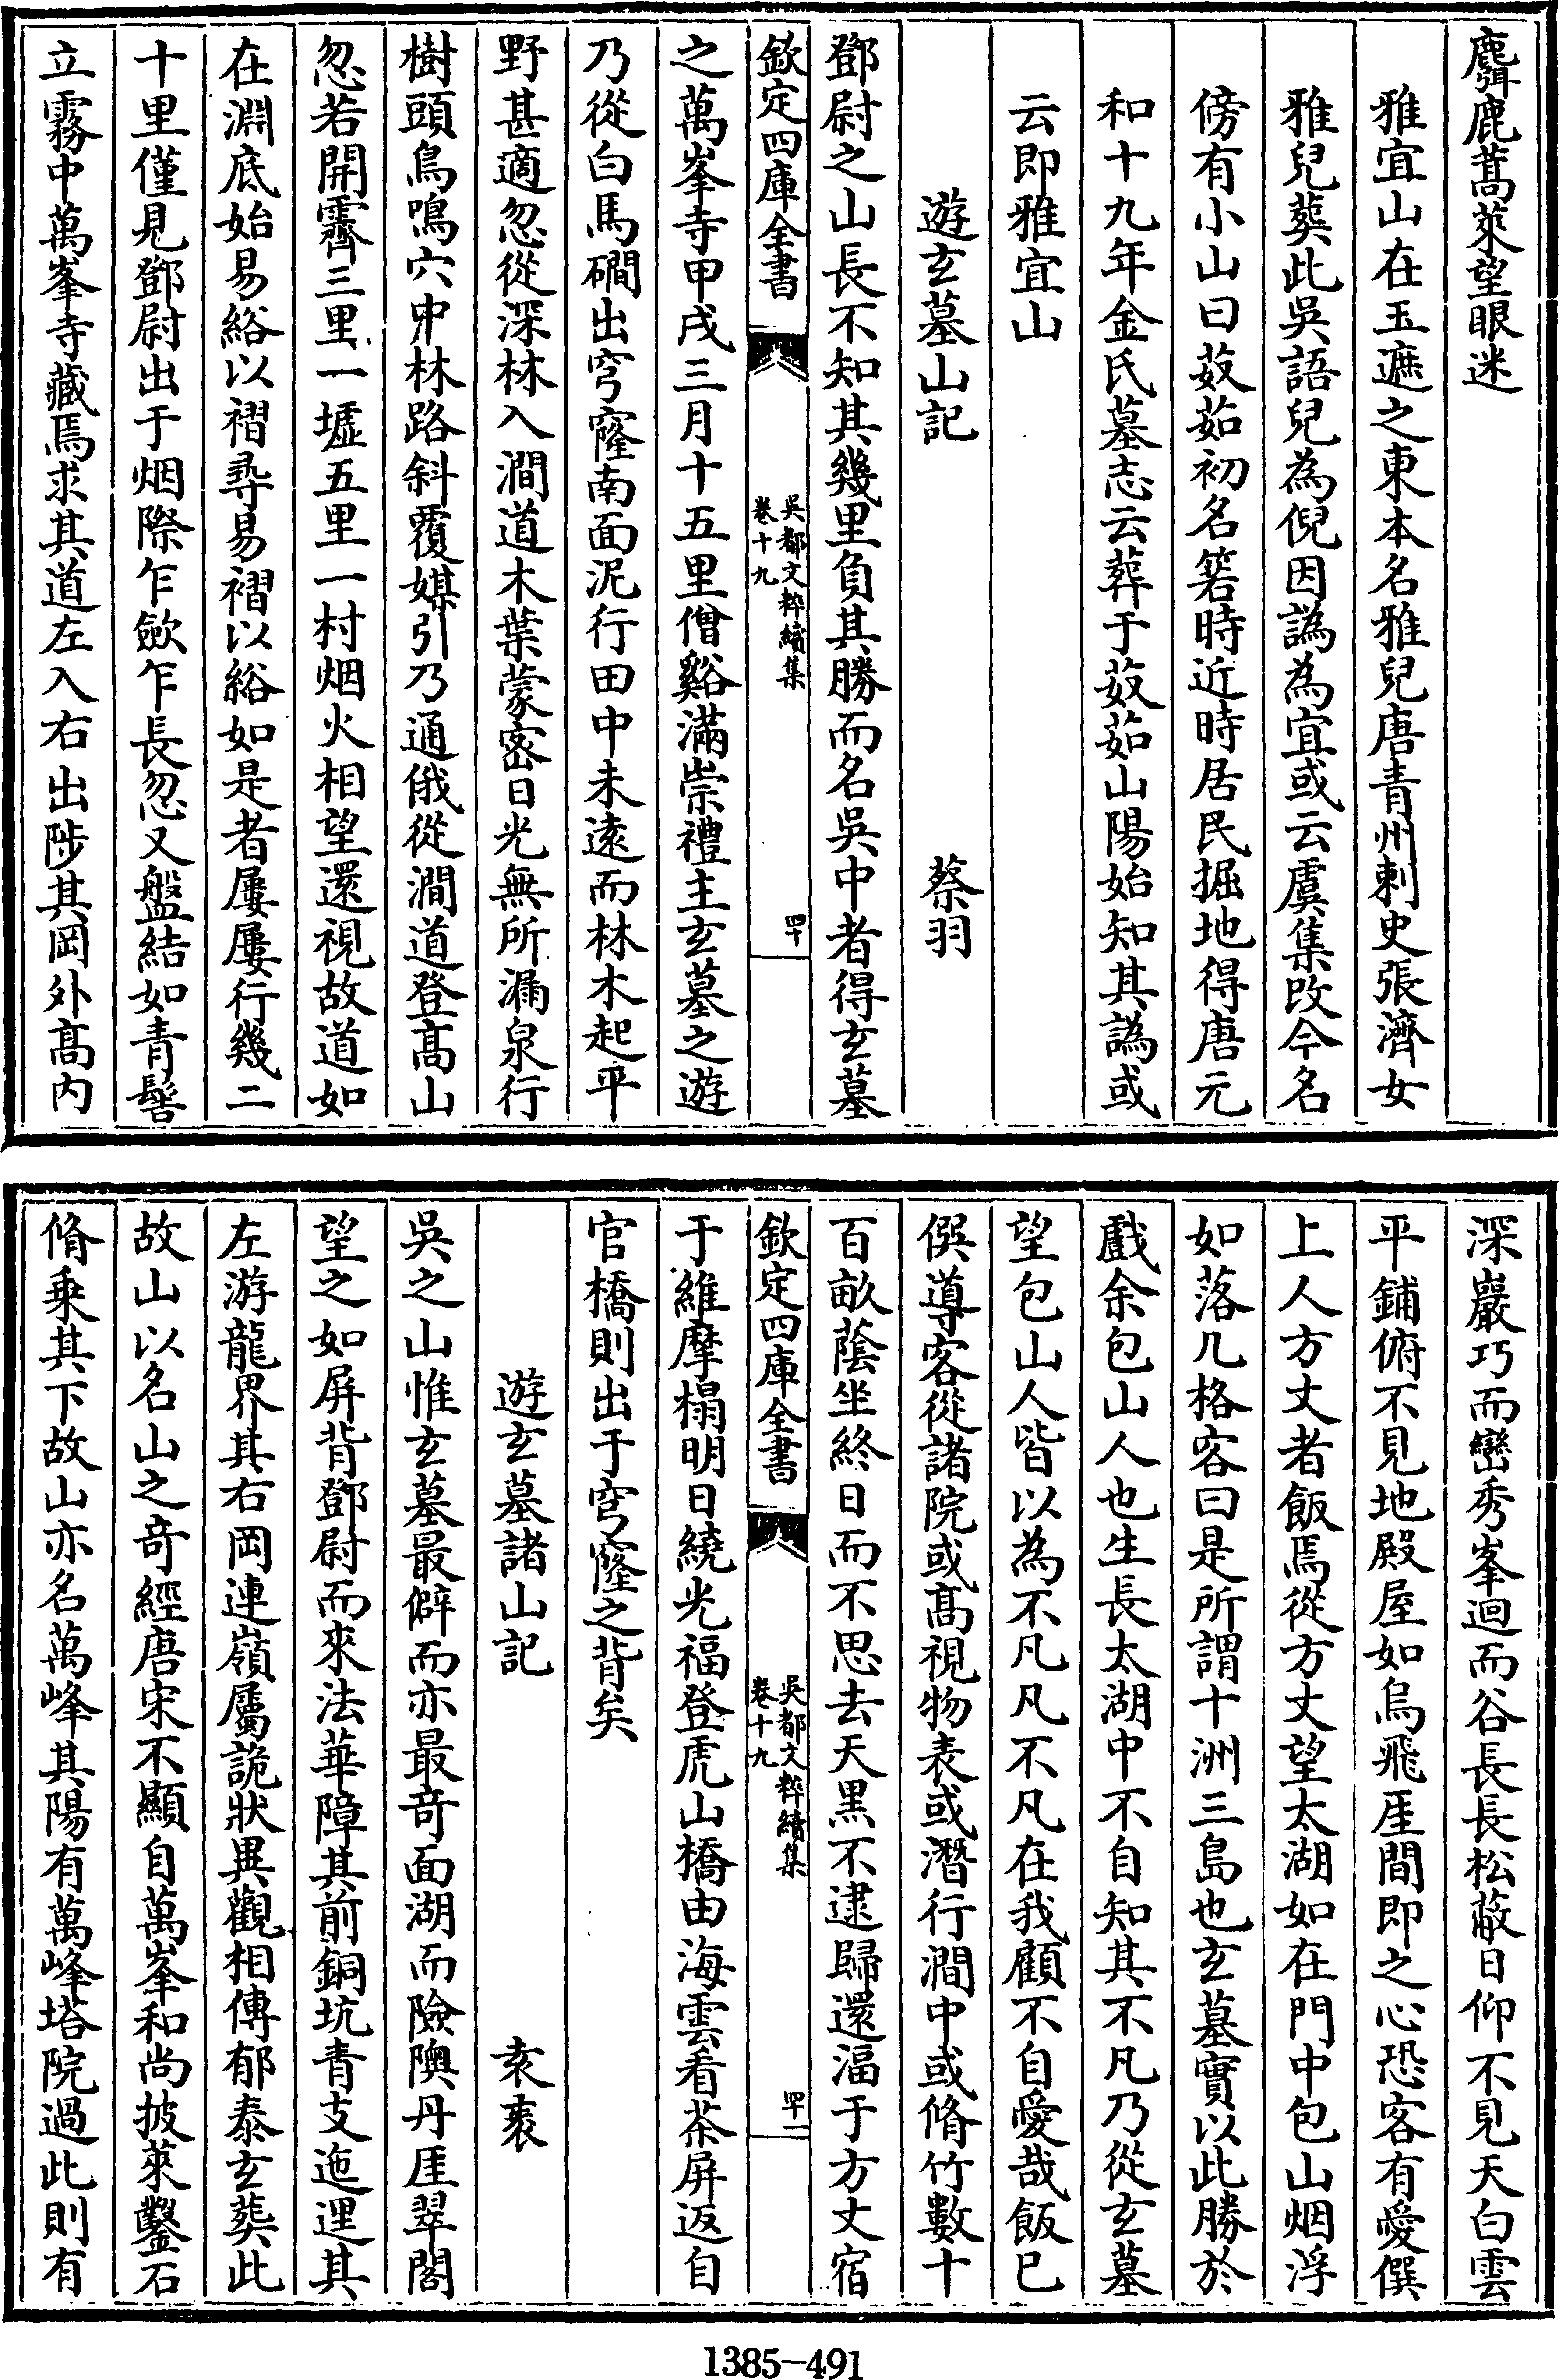 麛鹿蒿萊望眼迷
雅宜山在玉遮之東本名雅兒唐青州刺史張濟女
雅兒葬此吳語兒為倪因譌為宜或云虞集改今名
傍有小山曰菽茹初名箬時近時居民掘地得唐元
和十九年金氏墓志云葬于菽茹山陽始知其譌或
云即雅宜山
遊玄墓山記
蔡羽
鄧尉之山長不知其幾里負其勝而名吳中者得玄墓
欽定四庫全書
吳都文粹續集
卷十九
四十
之萬峯寺甲戌三月十五里僧谿滿崇禮主玄墓之遊
乃從白馬磵出穹窿南面泥行田中未遠而林木起平
野甚適忽從深林入澗道木葉蒙密日光無所漏泉行
樹頭鳥鳴穴中林路斜覆媒引乃通俄從澗道登高山
忽若開霽三里一墟五里一村烟火相望還視故道如
在淵底始易綌以褶尋易褶以綌如是者屢屢行幾二
十里僅見鄧尉出于烟際乍歛乍長忽又盤結如青髻
立霧中萬峯寺藏焉求其道左入右出陟其岡外高內
深巖巧而巒秀峯迴而谷長長松蔽日仰不見天白雲
平鋪俯不見地殿屋如烏飛厓間即之心恐客有愛僎
上人方丈者飯焉從方丈望太湖如在門中包山烟浮
如落几格客曰是所謂十洲三島也玄墓實以此勝於
戲余包山人也生長太湖中不自知其不凡乃從玄墓
望包山人皆以為不凡凡不凡在我顧不自愛哉飯已
僎導客從諸院或高視物表或潛行澗中或脩竹數十
百畝蔭坐終日而不思去天黑不逮歸還湢于方丈宿
欽定四庫全書
吳都文粹續集
卷十九
四十一
于維摩榻明日繞光福登虎山橋由海雲看茶屏返自
官橋則出于穹窿之背矣
遊玄墓諸山記
袁袠
吳之山惟玄墓最僻而亦最奇面湖而險隩丹厓翠閣
望之如屏背鄧尉而來法華障其前銅坑青支迤邐其
左游龍界其右岡連嶺屬詭狀異觀相傳郁泰玄葬此
故山以名山之奇經唐宋不顯自萬峯和尚披萊鑿石
脩乘其下故山亦名萬峰其陽有萬峰塔院過此則有
1385-491